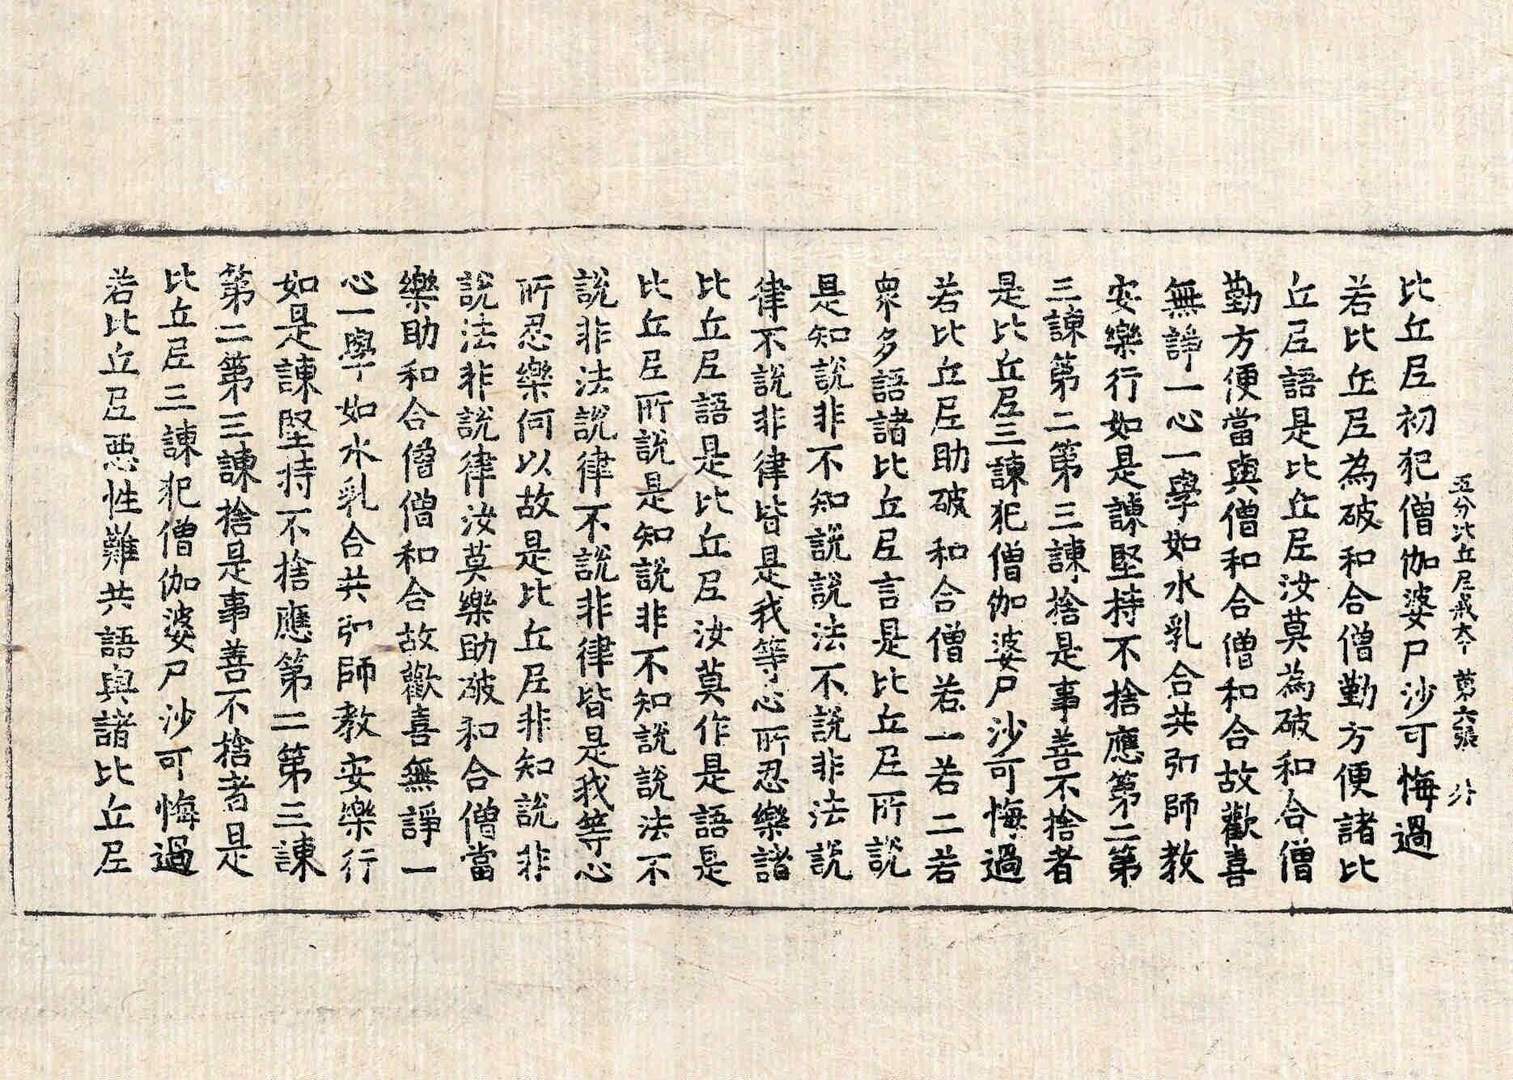 五分比丘尼戒本 第六張 竹
比丘尼初犯僧伽婆尸沙可悔過
若比丘尼為破和合僧勤方便諸比
丘尼語是比丘尼汝莫為破和合僧
勤方便當與僧和合僧和合故歡喜
無諍一心一學如水乳合共弘師教
安樂行如是諫堅持不捨應第二第
三諫第二第三諫捨是事善不捨者
是比丘尼三諫犯僧伽婆尸沙可悔過
若比丘尼助破和合僧若一若二若
衆多語諸比丘尼言是比丘尼所說
是知說非不知說說法不說非法說
律不說非律皆是我等心所忍樂諸
比丘尼語是比丘尼汝莫作是語是
比丘尼所說是知說非不知說說法不
說非法說律不說非律皆是我等心
所忍樂何以故是比丘尼非知說非
說法非說律汝莫樂助破和合僧當
樂助和合僧僧和合故歡喜無諍一
心一學如水乳合共弘師教安樂行
如是諫堅持不捨應第二第三諫
第二第三諫捨是事善不捨者是
比丘尼三諫犯僧伽婆尸沙可悔過
若比丘尼惡性難共語與諸比丘尼